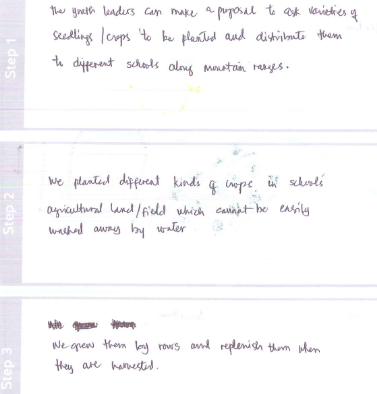 Step 1
The youth leaders can make a proposal to ask varieties of
seedlings / crops to be planted and distribute them
to different schools along mountain ranges.
Step 2
We planted different kinds of crops in schools'
agricultural land/field which cannot be easily
washed away by water
Step 3
We grew them by rows and replenish them when
they are harvested.